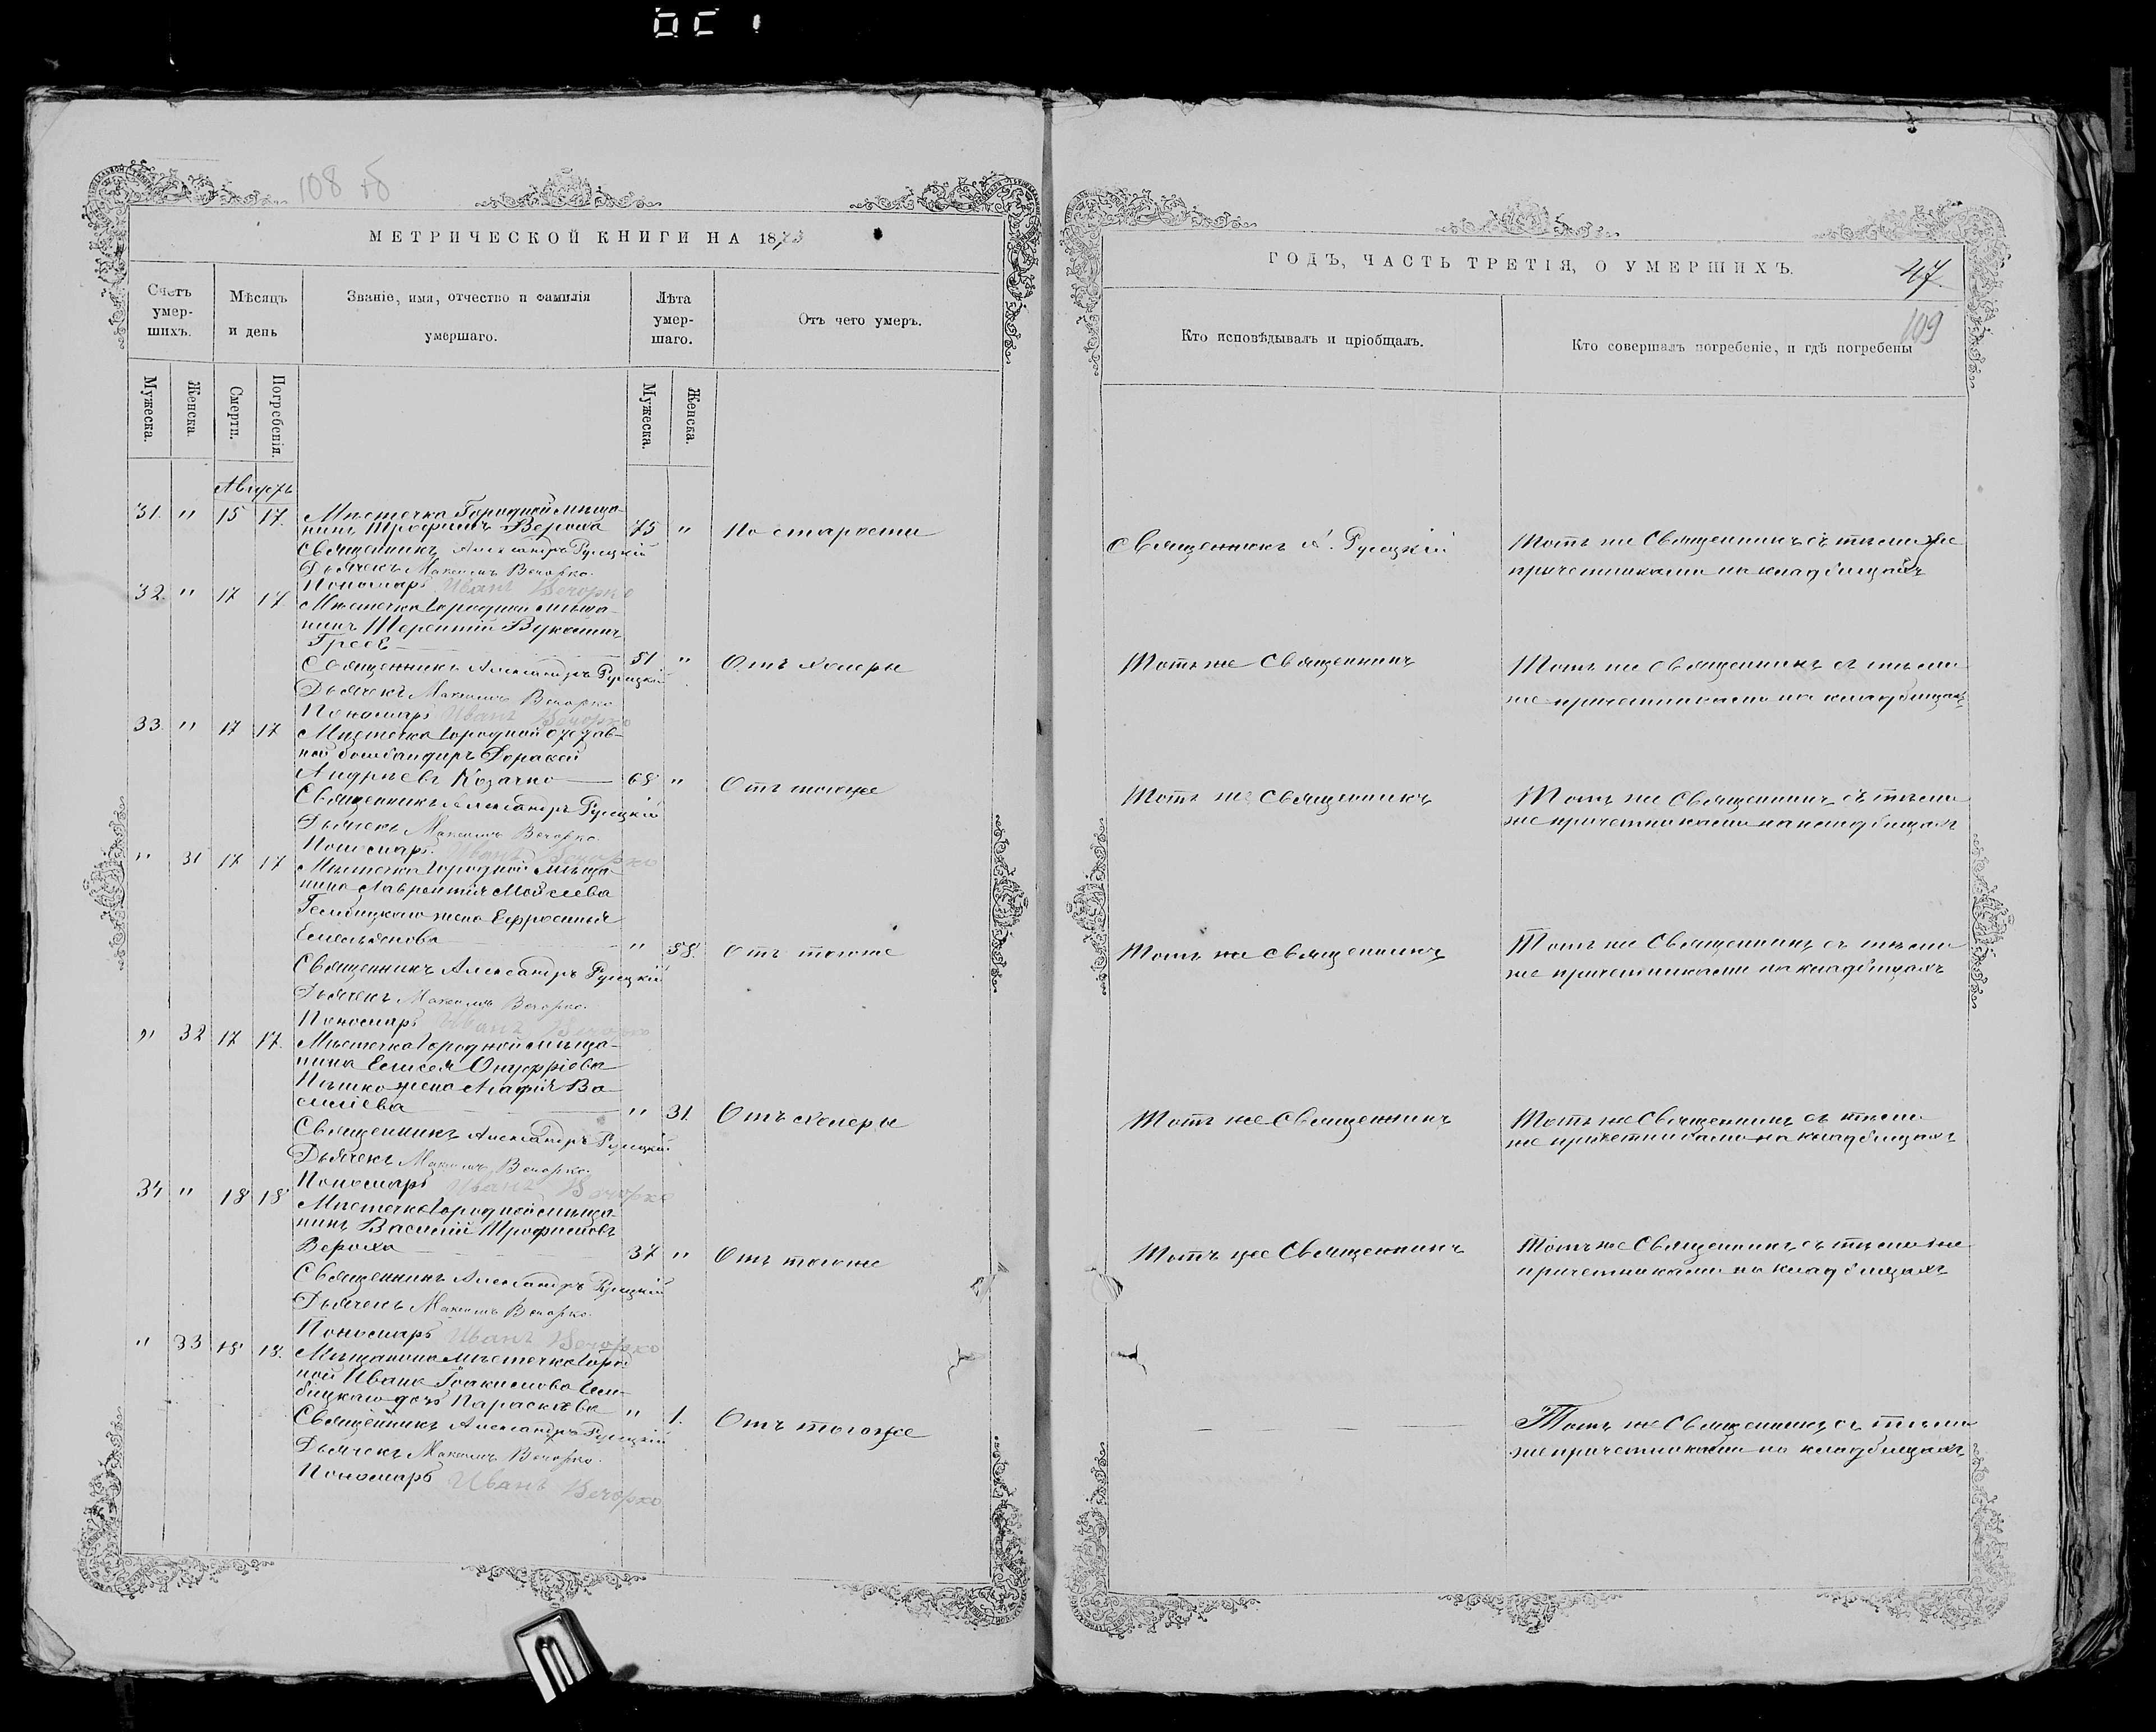 108 об
МЕТРИЧЕСКОЙ КНИГИ НА 1873
Счетъ умер-шихъ.
Мѣсяцъ и день
Званіе, имя, отчество и фамилія умершаго.
Лѣта умер-шаго.
Отъ чего умеръ.
Мужеска.
Женска.
Смерти.
Погребенія.
Мужеска.
Женска.
Августъ
31. " 15 17. Мѣстечка Городной мѣща-
нинъ Трофимъ Вероха 75 " По старости
Священникъ Александръ Ружицкій
Дьячекъ Максимъ Вечорко.
Пономарь Иванъ Вечорко
32. " 17 17. Мѣстечка Городной мѣща-
нинъ Терентій
51 " Отъ холеры
Священникъ Александръ Ружицкій
Дьячекъ Максимъ Вечорко
Пономарь Иванъ Вечорко
33. " 17 17 Мѣстечка Городной отстав-
ной бомбандиръ
Андреевъ Козачко 68 " Отъ тогоже
Священникъ Александръ Ружицкій
Дьячекъ Максимъ Вечорко.
Пономарь Иванъ Вечорко
" 31 17 17 Мѣстечка Городной мѣща-
нина Лаврентія Мойсеева
жена Ефросинья
Емельянова " 58. Отъ тогоже
Священникъ Александръ Ружицкій
Дьячекъ Максимъ Вечорко.
Пономарь Иванъ Вечорко
" 32 17 17. Мѣстечка Городной мѣща-
нина Елисея Онуфріева
Пѣшко жена Агафія Ва-
силіева " 31. Отъ холеры
Священникъ Александръ Ружицкій
Дьячекъ Максимъ Вечорко.
Пономарь Иванъ Вечорко
34 " 18 18 Мѣстечка Городной мѣща-
нинъ Василій Трофимовъ
Вероха 37 " Отъ тогоже
Священникъ Александръ Ружицкій
Дьячекъ Максимъ Вечорко.
Пономарь Иванъ Вечорко
" 33 18 18. Мѣщанина мѣстечка Город-
ной Ивана Іоакимова
дочь Параскева " 1. Отъ тогоже
Священникъ Александръ Ружицкій
Дьячекъ Максимъ Вечорко.
Пономарь Иванъ Вечорко
ГОДЪ, ЧАСТЬ ТРЕТІЯ, О УМЕРШИХЪ.
47
109
Кто исповѣдывалъ и пріобщалъ.
Кто совершалъ погребеніе, и гдѣ погребены
Священникъ А. Ружицкій Тотъ же Священникъ съ тѣми же
причетниками на кладбищахъ
Тотъ же Священникъ Тотъ же Священникъ съ тѣми
же причетниками на кладбищахъ
Тотъ же Священникъ Тотъ же Священникъ съ тѣми
же причетниками на кладбищахъ
Тотъ же Священникъ Тотъ же Священникъ съ тѣми
же причетниками на кладбищахъ
Тотъ же Священникъ Тотъ же Священникъ съ тѣми
же причетниками на кладбищахъ
Тотъ же Священникъ Тотъ же Священникъ съ тѣми же
причетниками на кладбищахъ
— — Тотъ же Священникъ съ тѣми
же причетниками на кладбищахъ